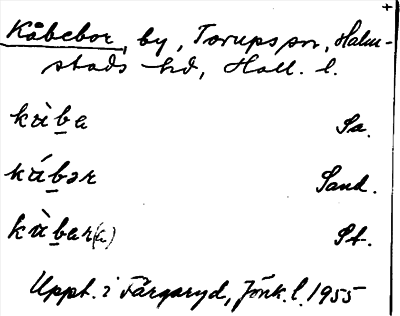 Kåbebor, by, Torups sn, Halm-
stads hd, Hall. l.
kàb̲a Sa.
káb̲ər Sand.
kàb̲ar(a) St.
Uppt. i Färgaryd, Jönk. l. 1955